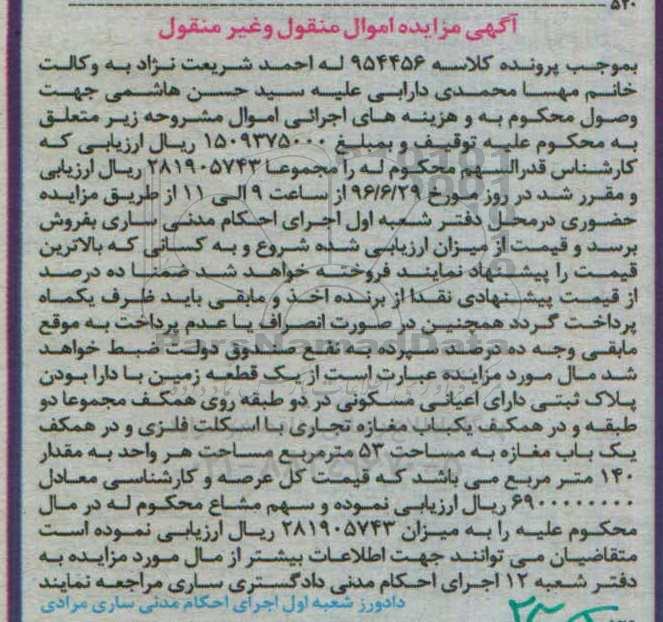 ۵۲۰
آگهی مزایده اموال منقول وغیر منقول
بموجب پرونده کلاسه ۹۵۴۴۵۶ له احمد شریعت نژاد به وکالت
خانم مهسا محمدی دارابی علیه سید حسن هاشمی جهت
وصول محکوم به و هزینه های اجرائی اموال مشروحه زیر متعلق
به محکوم علیه توقیف و بمبلغ ۱۵۰۹۳۷۵۰۰۰ ریال ارزیابی که
کارشناس قدرالسهم محکوم له را مجموعا ۲۸۱۹۰۵۷۴۳ ریال ارزیابی
و مقرر شد در روز مورخ ۹۶/۶/۲۹ از ساعت ۹ الی ۱۱ از طریق مزایده
حضوری درمحل دفتر شعبه اول اجرای احکام مدنی ساری بفروش
برسد و قیمت از میزان ارزیابی شده شروع و به کسانی که بالاترین
قیمت را پیشنهاد نمایند فروخته خواهد شد ضمنا ده درصد
از قیمت پیشنهادی نقدا از برنده اخذ و مابقی باید ظرف یکماه
پرداخت گردد همچنین در صورت انصراف یا عدم پرداخت به موقع
مابقی وجه ده درصد سپرده به نفع صندوق دولت ضبط خواهد
شد مال مورد مزایده عبارت است از یک قطعه زمین با دارا بودن
پلاک ثبتی دارای اعیانی مسکونی در دو طبقه روی همکف مجموعا دو
طبقه و در همکف یکباب مغازه تجاری با اسکلت فلزی و در همکف
یک باب مغازه به مساحت ۵۳ مترمربع مساحت هر واحد به مقدار
۱۴۰ متر مربع می باشد که قیمت کل عرصه و کارشناسی معادل
۶۹۰۰۰۰۰۰۰۰ ریال ارزیابی نموده و سهم مشاع محکوم له در مال
محکوم علیه را به میزان ۲۸۱۹۰۵۷۴۳ ریال ارزیابی نموده است
متقاضیان می توانند جهت اطلاعات بیشتر از مال مورد مزایده به
دفتر شعبه ۱۲ اجرای احکام مدنی دادگستری ساری مراجعه نمایند
دادورز شعبه اول اجرای احکام مدنی ساری مرادی
ParsNamadData